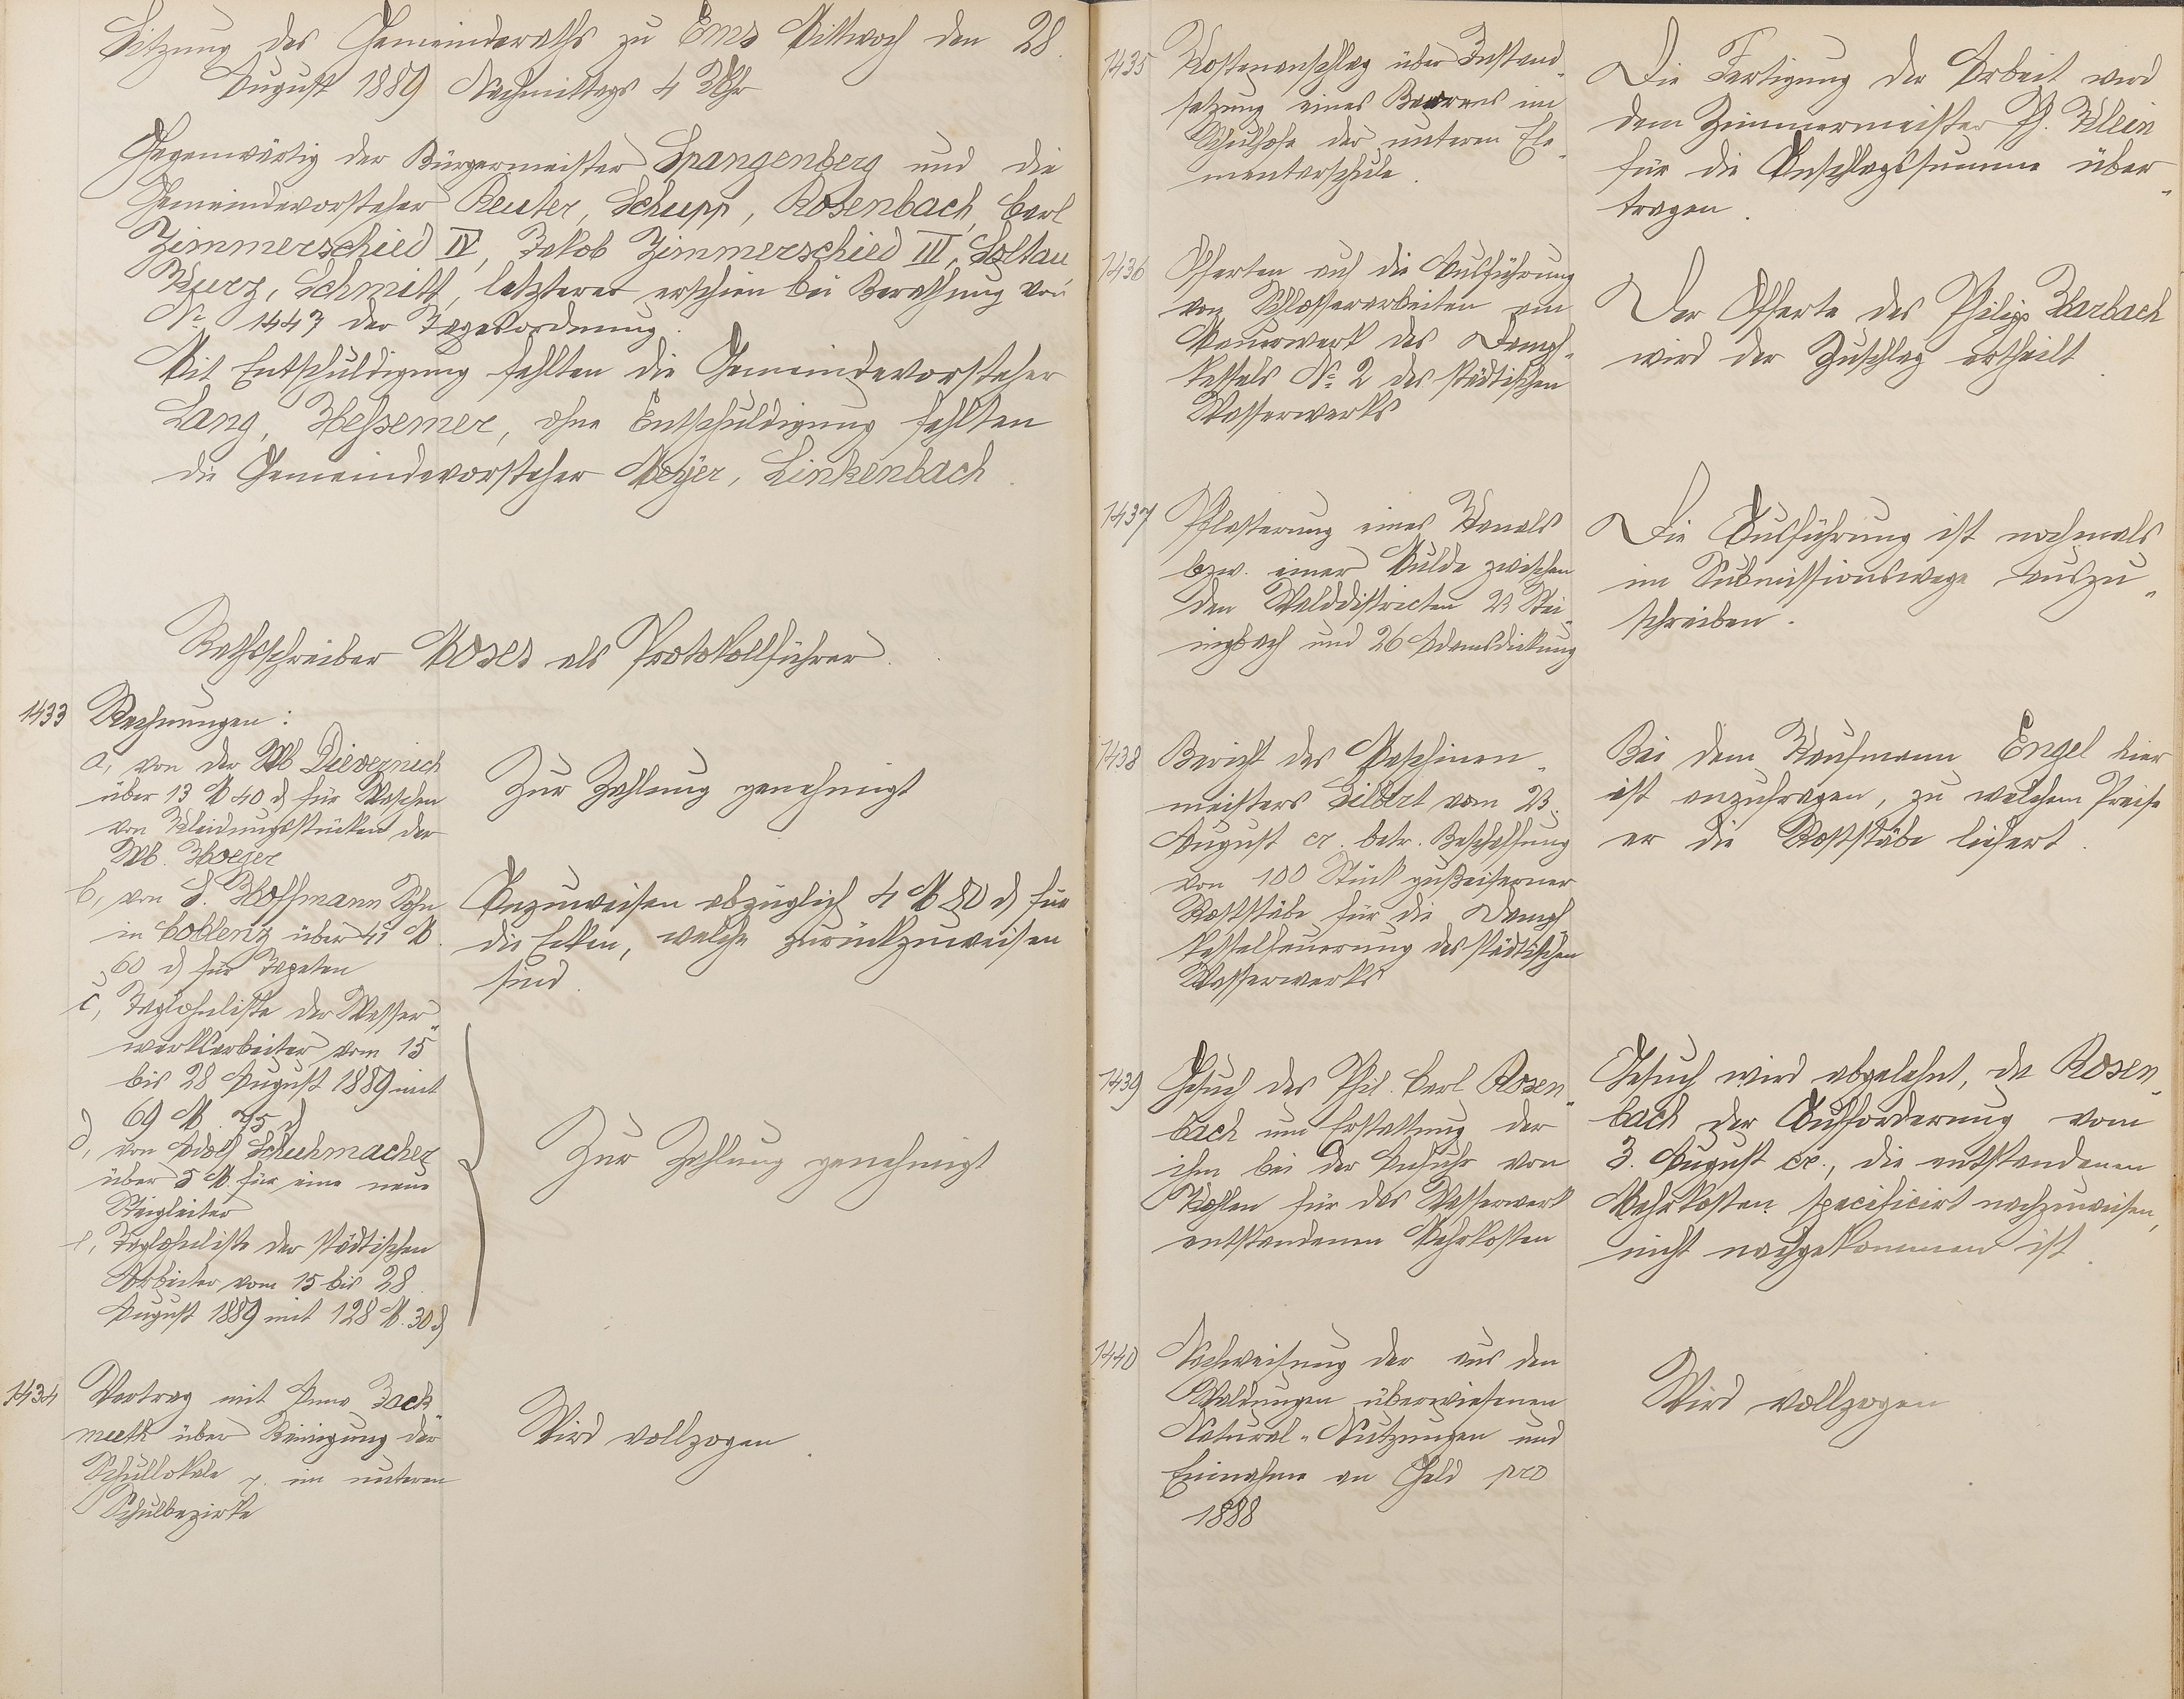 Sitzung des Gemeinderaths zu Ems Mittwoch den 28.
August 1889 Nachmittags 4 Uhr
Gegenwärtig der Bürgermeister Spangenberg und die
Gemeindevorsteher Reuter, Schupp, Rosenbach, Carl
Zimmerschied IV, Jakob Zimmerschied III, Soltau
Kurz, Schmitt, letzterer erschien bei Berathung von
No. 1447 der Tagesordnung.
Mit Entschuldigung fehlten die Gemeindevorsteher
Lang, Hessemer, ohne Entschuldigung fehlten
die Gemeindevorsteher Meyer, Linkenbach.
Rathsschreiber Moses als Protokollführer.
1433 Rechnungen:
a, von der Wb Dievernich
über 13 M 40 d für Waschen
von Kleidungsstücken der
Wb.
Zur Zahlung genehmigt
b, von S. Hoffmann Sohn
in Coblenz über 41 M.
60 d für Tapeten
Anzuweisen abzüglich 4 M 80 d für
die Ecken, welche zurückzuweisen
sind.
c, Taglohnliste der Wasser-
werksarbeiter vom 15
bis 28 August 1889 mit
69 M. 75 d
d, von Adolf Schuhmacher
über 5 M. für eine neue
Steigleiter
e, Taglohnliste der städtischen
Arbeiter vom 15 bis 28.
August 1889 mit 128 M. 30 d
Zur Zahlung genehmigt
1434 Vertrag mit Anna Zack-
meth über Reinigung der
Schullokale p. im unteren
Schulbezirke
Wird vollzogen.
1435 Kostenanschlag über Instand-
setzung eines Barrens im
Schulhofe der unteren Ele-
mentarschule.
Die Fertigung der Arbeit wird
dem Zimmermeister Ph. Klein
für die Anschlagssumme über-
tragen.
1436 Offerten auf die Ausführung
von Schlosserarbeiten am
Mauerwerk des Dampf-
kessels No. 2 des städtischen
Wasserwerks
Der Offerte des Philipp Harbach
wird der Zuschlag ertheilt.
1437 Pflasterung eines Kanals
bzw. einer Mulde zwischen
den Walddistricten 23
und 26 Adamsdickung
Die Ausführung ist nochmals
im Submissionswege auszu-
schreiben.
1438 Bericht des Maschinen-
meisters Silbert vom 23.
August cr. betr. Beschaffung
von 100 Stück gußeiserner
Roststäbe für die Dampf-
kesselfeuerung des städtischen
Wasserwerks
Bei dem Kaufmann Engel hier
ist anzufragen, zu welchem Preise
er die Roststäbe liefert.
1439 Gesuch des Phil. Carl Rosen-
bach um Erstattung der
ihm bei der Anfuhr von
Kohlen für das Wasserwerk
entstandenen Mehrkosten
Gesuch wird abgelehnt, da Rosen-
bach der Aufforderung vom
3. August cr., die entstandenen
Mehrkosten specificirt nachzuweisen,
nicht nachgekommen ist.
1440 Nachweisung der aus den
Waldungen überwiesenen
Natural-Nutzungen und
Einnahme an Geld pro
1888
Wird vollzogen